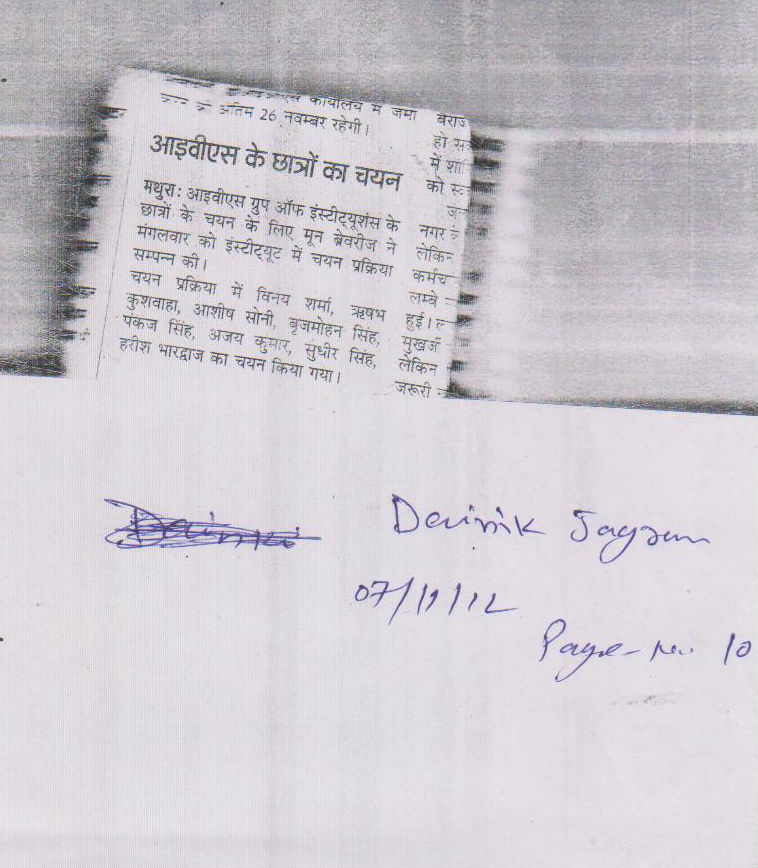 कार्यालय में जमा
अंतिम 26 नवम्बर रहेगी।
आइवीएस के छात्रों का चयन
मथुरा: आइवीएस ग्रुप ऑफ इंस्टीट्यूशंस के
छात्रों के चयन के लिए मून ब्रेवरीज ने
मंगलवार को इंस्टीट्यूट में चयन प्रक्रिया
सम्पन्न की।
चयन प्रक्रिया में विनय शर्मा, ऋषभ
कुशवाहा, आशीष सोनी, बृजमोहन सिंह,
पंकज सिंह, अजय कुमार, सुधीर सिंह,
हरीश भारद्वाज का चयन किया गया।
हो
में
को
नगर
लेकिन
लम्बे
हुई।
लेकिन
जरूरी
Dainik Jagran
07/11/12
Page-No. 10